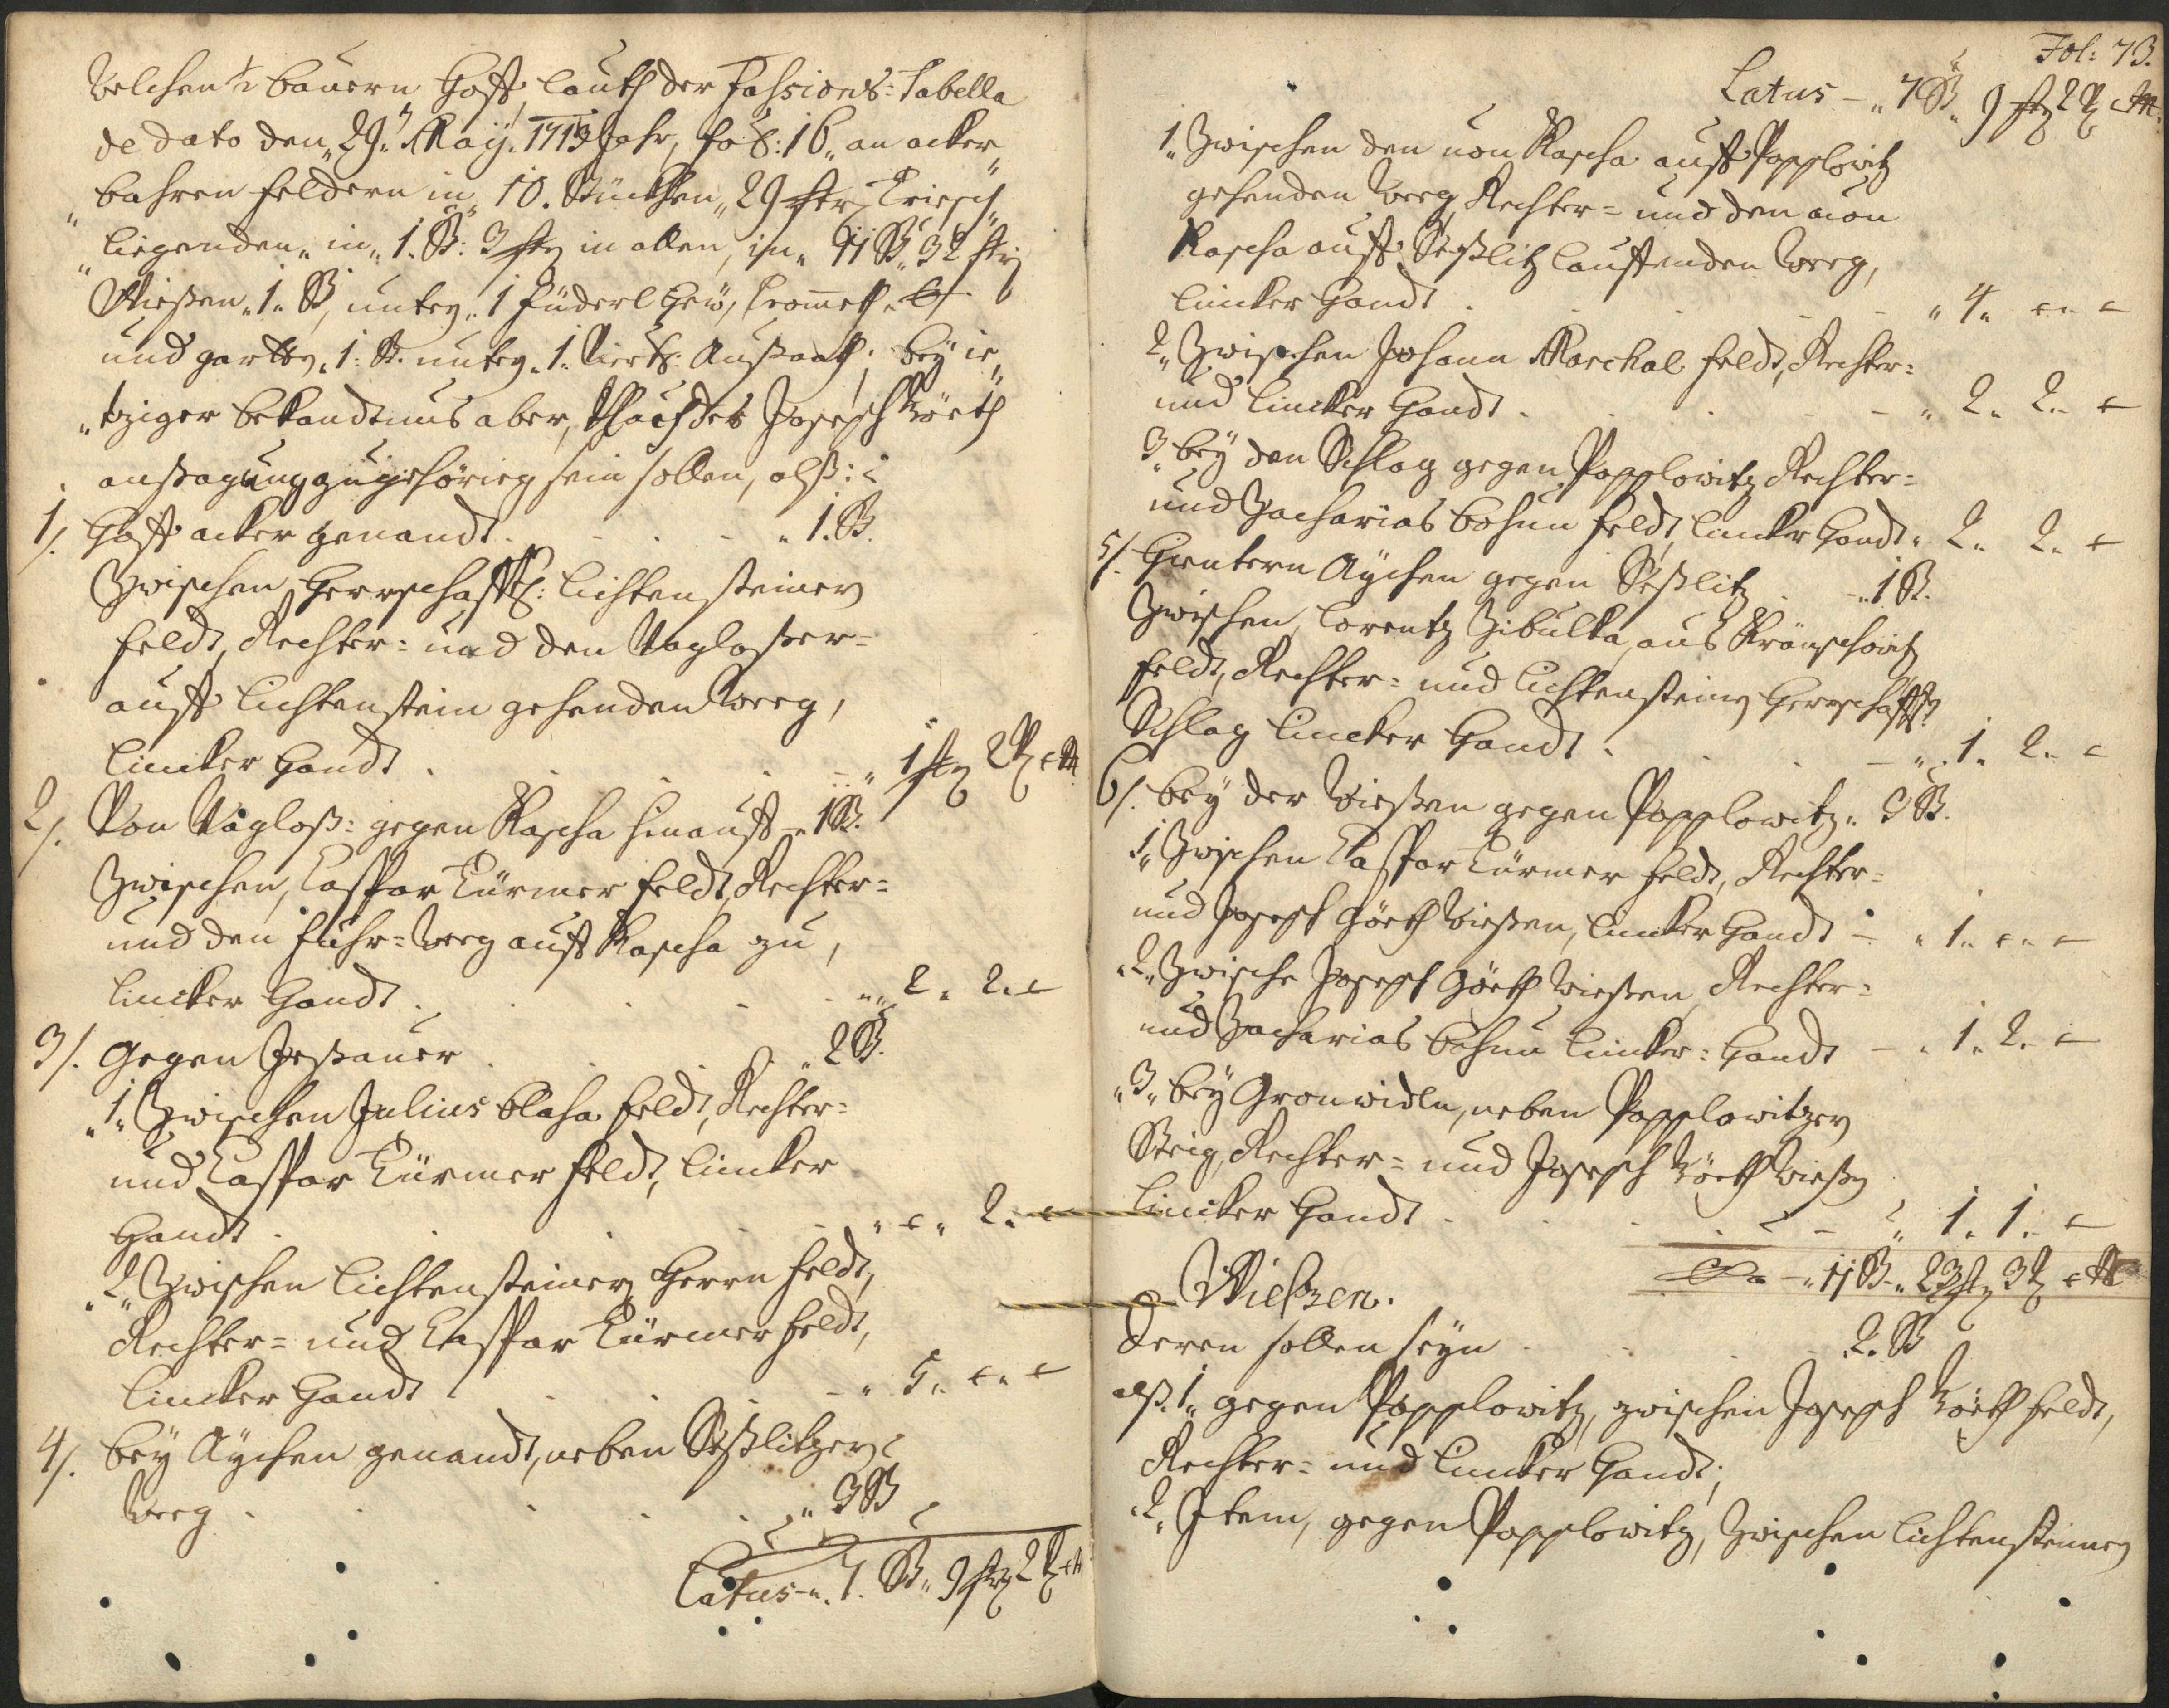 Welchen ½ bauern Hoff, lauth der Fassions=Tabella
de dato den „29.“ Maÿ. 1713 Jahr, fol: 16 „an acker„
„bahren feldern in „10. Stückhen „29 str, Triesch„
„liegenden„ in „1. St: 3 str in allen, in „11 St „32 str
Wießen „1. St, unter „1 füderl Heü,
und gartten „1. St. unter „1. Viertl: Außaath; beÿ ie„
„tziger bekandtnus aber, Joseph Körth
außagung zugehörig sein sollen, alß:
1/. Hoff acker genandt . . . „ 1. St.
Zwischen, Herrschafftl: Lichtensteiner
feldt, Rechter= und den
auff Lichtenstein gehenden Weeg,
lincker Handt . . . „ 1 str 2
2/. Von gegen Rascha hinauff „1 St.
Zwischen, Caspar Türmer feldt, Rechter=
und den fuhr=Weeg auff Rascha zu,
lincker Handt . . . „ 2„ 2„
3/. Gegen Jessauer . . . „ 2 St.
„1„ Zwischen Julius blaha feldt, Rechter=
und Caspar Türmer feldt, lincker
Handt . . . „ 2„
„2„ Zwischen Lichtensteiner Herrn feldt,
Rechter= und Caspar Türmer feldt,
lincker Handt . . . „ 5„
4/. beÿ Aÿchen genandt, neben Seßlitzer
Weeg . . . „ 3 St
Latus „ 7. St „ 9 str 2
Fol: 73.
Latus – „ 7 St „ 9 str 2
1„ Zwischen den von Rascha auff Popplowitz
gehenden Weeg, Rechter= und den von
Rascha auff Seßlitz lauffenden Weeg,
lincker Handt . . . „ 4„
2„ Zwischen Johann Marchal feldt, Rechter=
und lincker Handt . . . „ 2„ 2„
3„ beÿ den Schlag gegen Popplowitz Rechter=
und Zacharias bohun feldt, lincker Handt „ 2„ 2„
5/. Hintern Aÿchen gegen Seßlitz . „1 St.
Zwischen, Lorentz Zibulka, aus
feldt, Rechter= und Lichtensteiner Herrschafftl:
Schlag lincker Handt . . . „ 1„ 2„
6/. beÿ der Wießen gegen Popplowitz „ 3 St.
„1„ Zwischen Caspar Türmer feldt, Rechter=
und Joseph Görth Wießen, lincker Handt – „ 1„
„2„ Zwische Joseph Görth Wießen, Rechter=
und Zacharias bohun lincker= Handt – „ 1„ 2„
„3„ beÿ Gronwidln, neben Popplowitzer
Steig, Rechter= und Joseph Körth Wießen
lincker Handt . . . „ 1„ 1„
„ 11 St „ 23 str 3
Wießen.
Deren sollen seÿn . . . 2. St
alß. 1„ gegen Popplowitz, zwischen Joseph Körth feldt,
Rechter= und lincker Handt;
„2„ Item, gegen Popplowitz, Zwischen Lichtensteiner